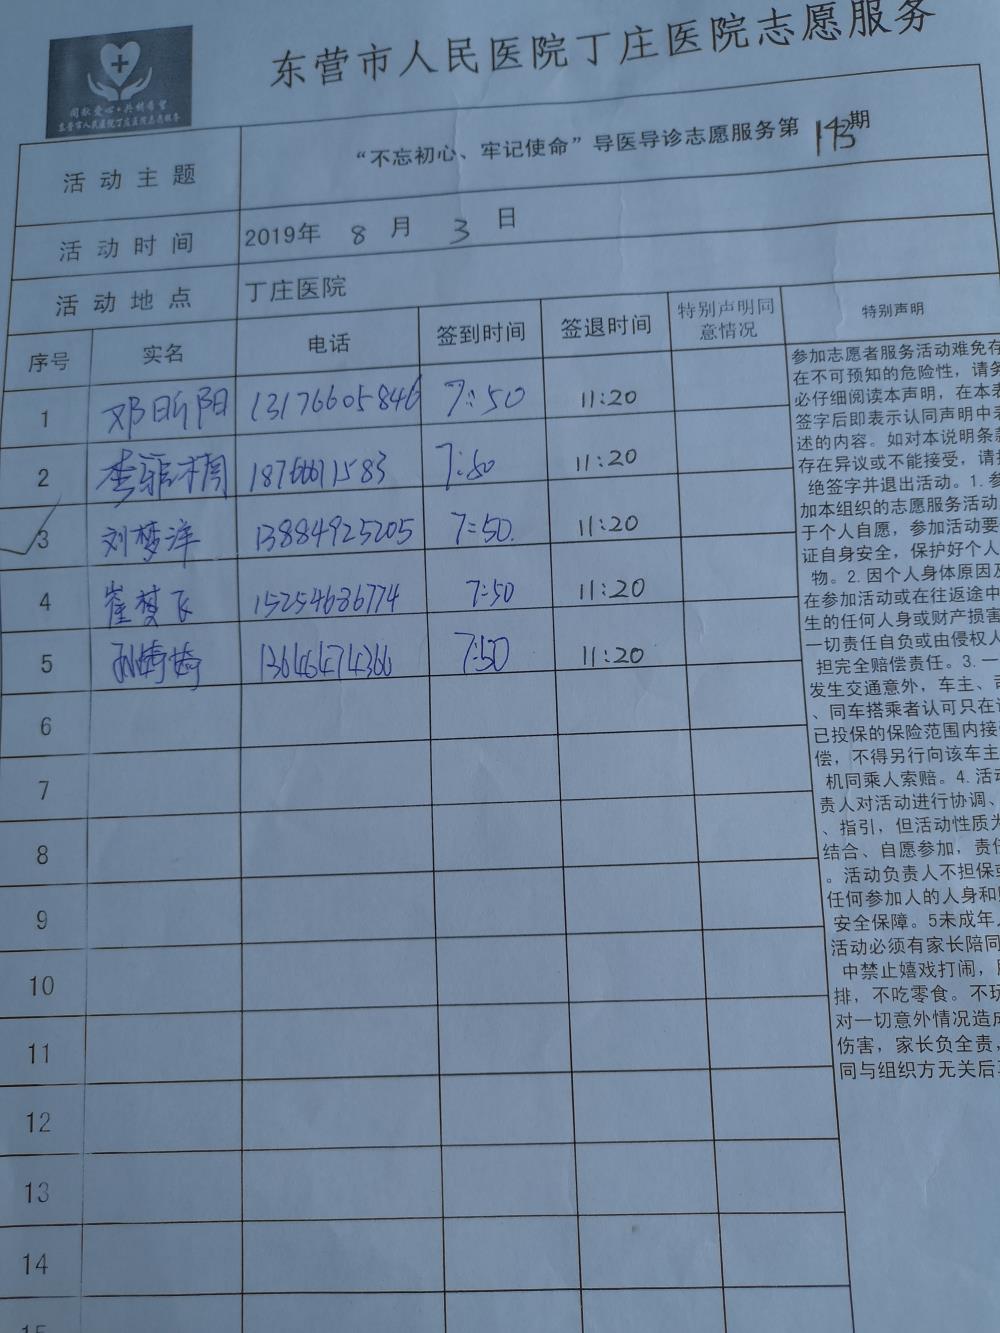 东营市人民医院丁庄医院志愿服务
东营市人民医院丁庄医院志愿服务
活动主题 “不忘初心、牢记使命”导医导诊志愿服务第 期
活动时间 2019年 8 月 3 日
活动地点 丁庄医院
序号 实名 电话 签到时间 签退时间 特别声明同意情况 特别声明
1 邓昕阳 13176605846 7:50 11:20
2 李雅 18766671583 7:50 11:20
3 刘梦洋 13884925205 7:50 11:20
4 崔梦飞 15254686774 7:50 11:20
5 孙婧婍 13646474366 7:50 11:20
6
7
8
9
10
11
12
13
14
15
参加志愿者服务活动难免存
在不可预知的危险性，请务
必仔细阅读本声明，在本表
签字后即表示认同声明中表
述的内容。如对本说明条款
存在异议或不能接受，请拒
绝签字并退出活动。1.参
加本组织的志愿服务活动
于个人自愿，参加活动要
证自身安全，保护好个人
物。2.因个人身体原因及
在参加活动或在往返途中
生的任何人身或财产损害
一切责任自负或由侵权人
担完全赔偿责任。3.一
发生交通意外，车主、司
、同车搭乘者认可只在
已投保的保险范围内接
偿，不得另行向该车主
机同乘人索赔。4.活动
责人对活动进行协调、
、指引，但活动性质为
结合、自愿参加，责任
。活动负责人不担保
任何参加人的人身和
安全保障。5未成年人
活动必须有家长陪同
中禁止嬉戏打闹，
排，不吃零食。不玩
对一切意外情况造成
伤害，家长负全责，
同与组织方无关后